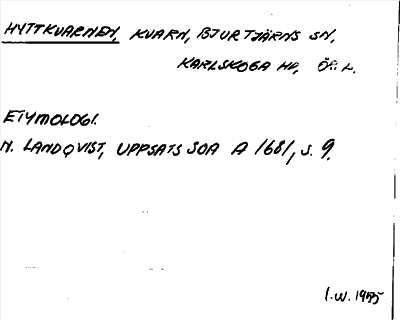 HYTTKVARNEN, KVARN, BJURTJÄRNS SN,
KARLSKOGA HD, ÖR. L.
ETYMOLOGI.
N. LANDQVIST, UPPSATS SOA A 1681, S. 9.
I.W. 1975